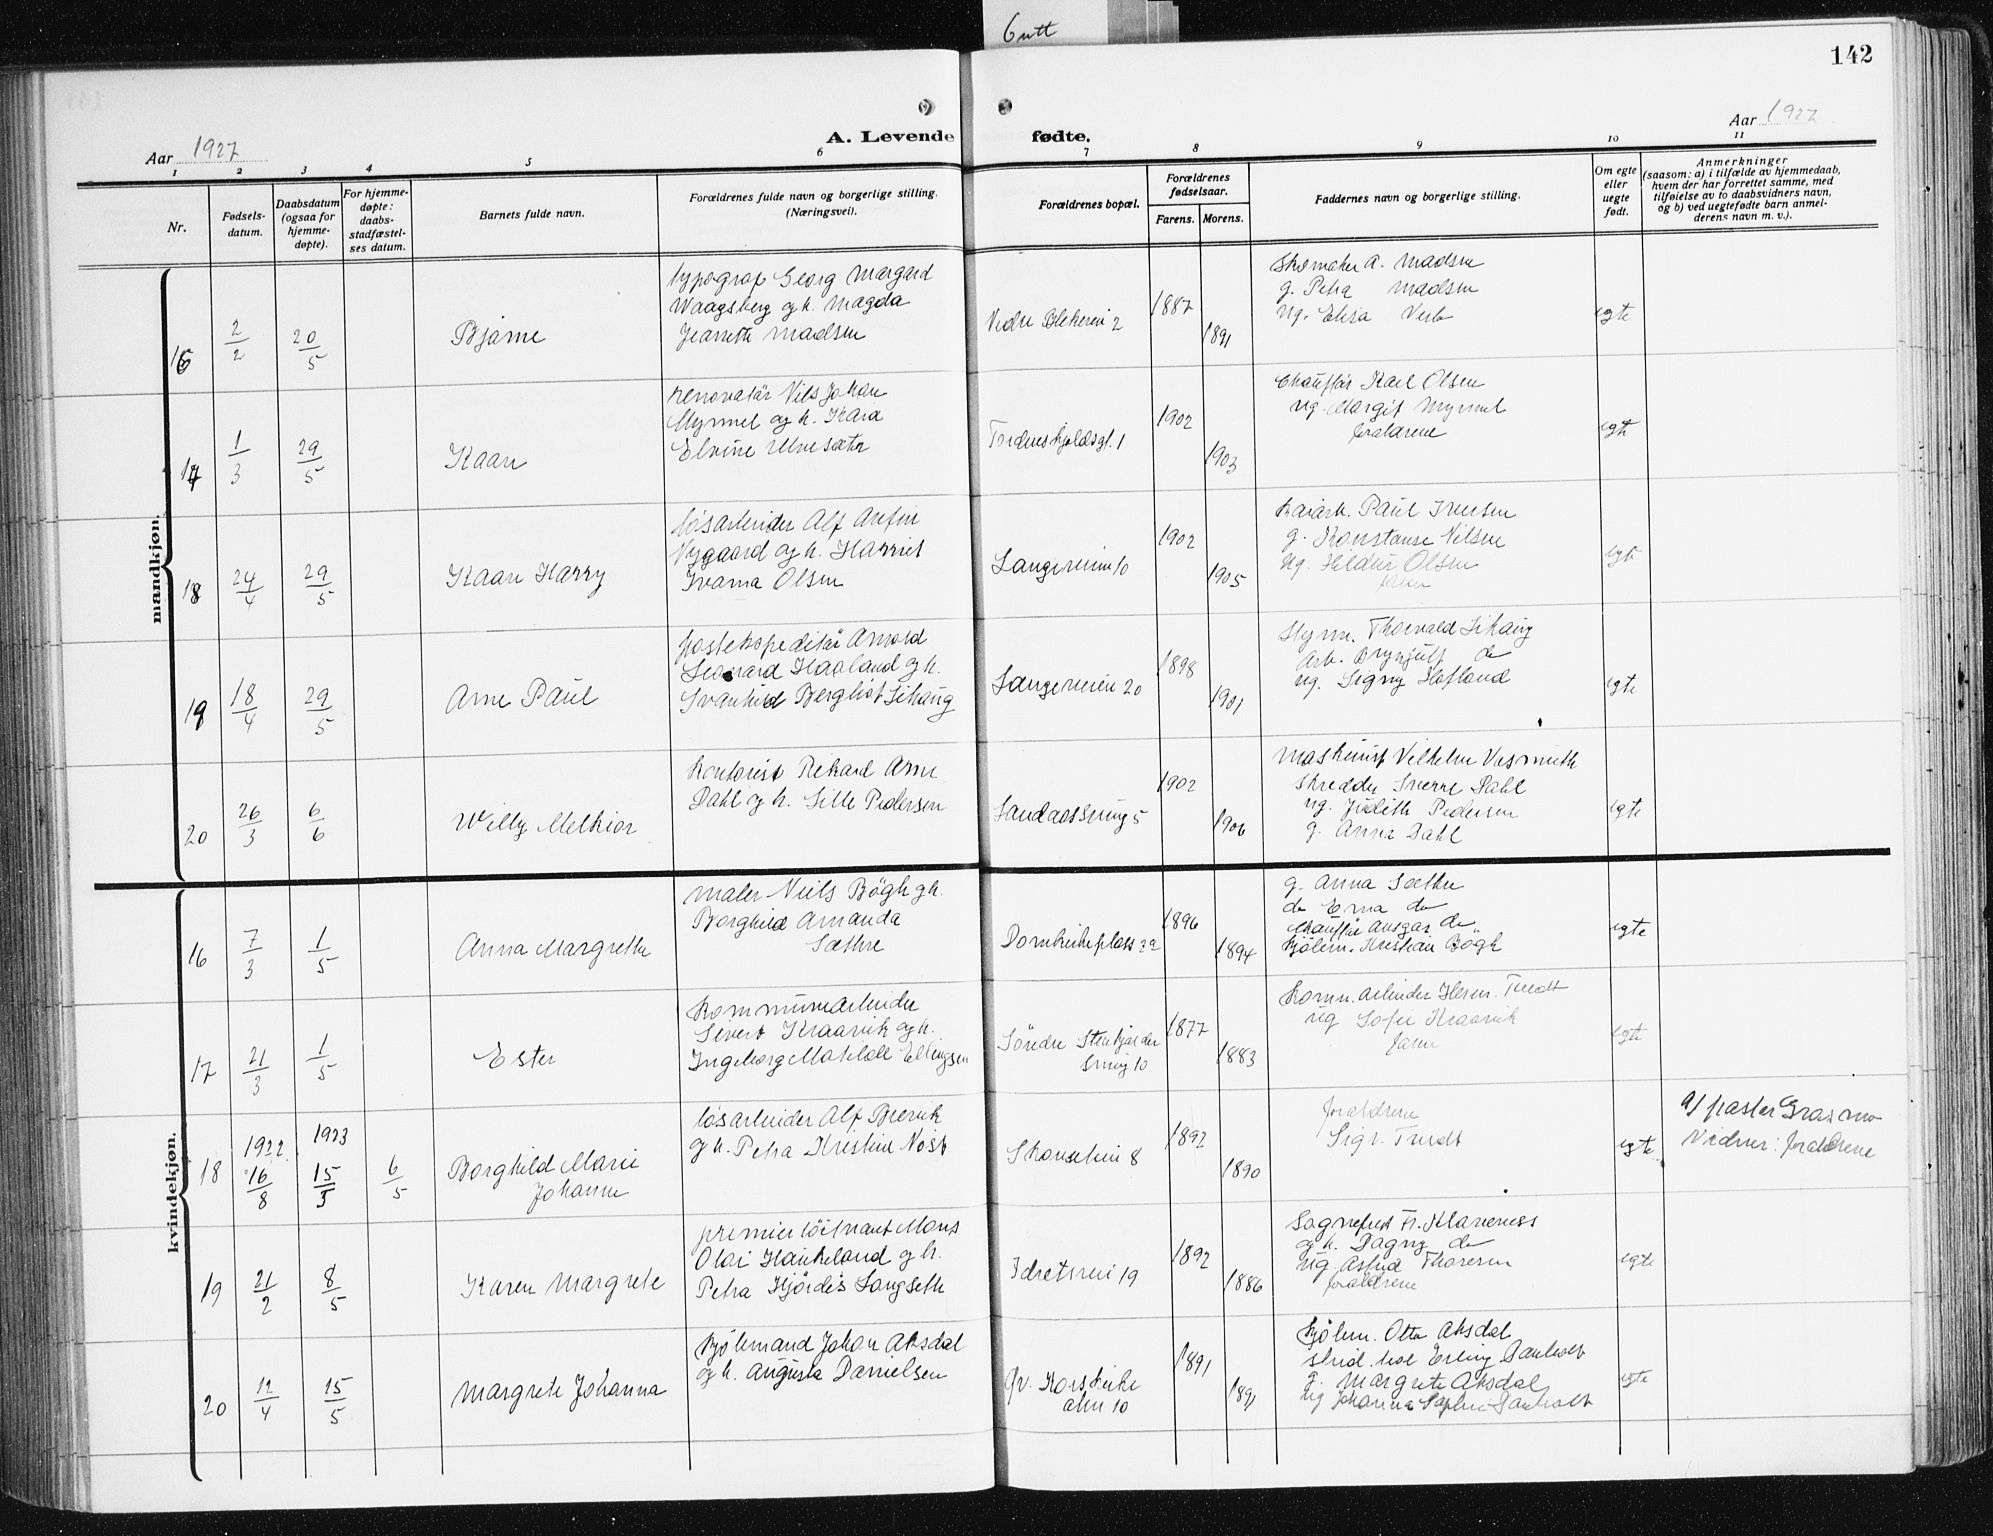 6 utt
142
Aar 1927
A. Levende fødte.
Aar 1927
1 2 3 4 5 6 7 8 9 10 11
Nr.
Fødsels-
datum.
Daabsdatum
(ogsaa for
hjemme-
døpte).
For hjemme-
døpte:
daabs-
stadfæstel-
ses datum.
Barnets fulde navn.
Forældrenes fulde navn og borgerlige stilling.
(Næringsvei).
Forældrenes bopæl.
Forældrenes
fødselsaar.
Farens. Morens.
Faddernes navn og borgerlige stilling.
Om egte
eller
uegte
født.
Anmerkninger
(saasom: a) i tilfælde av hjemmedaab,
hvem der har forrettet samme, med
tilføielse av to daabsvidners navn,
og b) ved uegtefødte barn anmel-
derens navn m. v.).
mandkjøn.
16 2/2 20/5 Bjarne
typograf Georg Margard
Waagsberg og h. Magda
Jeanette Madsen
Nedre Blekevei 2
1887 1891
Skomaker A. Madsen
g. Petra Madsen
ug. Elisa
egte
17 1/3 29/5 Kaare
renovatør Nils Johan
Myrmel og h. Kara
Elvine Ulvesæter
Tordenskjoldsgt. 1
1902 1903
Chauffør Karl Olsen
ug. Margit Myrmel
forældrene
egte
18 24/4 29/5 Kaare Harry
løsarbeider Alf Arefin
Nygaard og h. Harriet
Ivarna Olsen
Langeveien 10
1902 1905
Kaiarb. Paul Iversen
g. Konstanse Nilsen
ug. Hildur Olsen
faren
egte
19 18/4 29/5 Arne Paul
postekspeditør Arnold
Leonard Haaland og h.
Svanhild Bergliot Lihaug
Langeveien 20
1898 1901
Styrm. Thorvald Lihaug
Arb. Brynjulf do
ug. Signy Hofland
egte
20 26/3 6/6 Willy Melkior
kontorist Rikard Arne
Dahl og h. Lille Pedersen
Landaassving 5
1902 1906
Maskinist Vilhelm
Skredder Sverre Dahl
ug. Judith Pedersen
g. Anna Dahl
egte
kvindekjøn.
16 7/3 1/5 Anna Margrethe
maler Niels Bögh og h.
Borghild Amanda
Sæthre
Domkirkeplass 2a
1896 1894
g. Anna Sæthre
do Erna do
Chauffør Ansgar do
Kjølem. Kristian Bögh
egte
17 21/3 1/5 Ester
kommunearbeider
Sivert Kraavik og h.
Ingeborg Matilde Ellingsen
Söndre Stenkjælder
smug 10
1877 1883
Komm. arbeider Herm. Tvedt
ug Sofie Kraavik
faren
egte
18 1922 16/8 1923 15/3 6/5 Borghild Marie
Johanne
løsarbeider Alf Brevik
og h. Petra Kristine Nöst
Skanselien 8
1892 1890
forældrene
Sigv. Tvedt
egte
a) pastor Grasmo
Vidner: forældrene
19 21/2 8/5 Karen Margrete
premierløitnant Mons
Olai Haukeland og h.
Petra Hjördis Langseth
Idretsvei 19
1892 1886
Sognepræst Fr. Klaveness
og h. Dagny do
ug Astrid Thoresen
forældrene
egte
20 12/4 15/5 Margrete Johanna
kjølemand Johan Aksdal
og h. Augusta Danielsen
Øv. Korskirke
alm 10
1891 1891
Kjölem. Otto Aksdal
stud. Erling
g. Margrete Aksdal
ug Johanna Sophie
egte